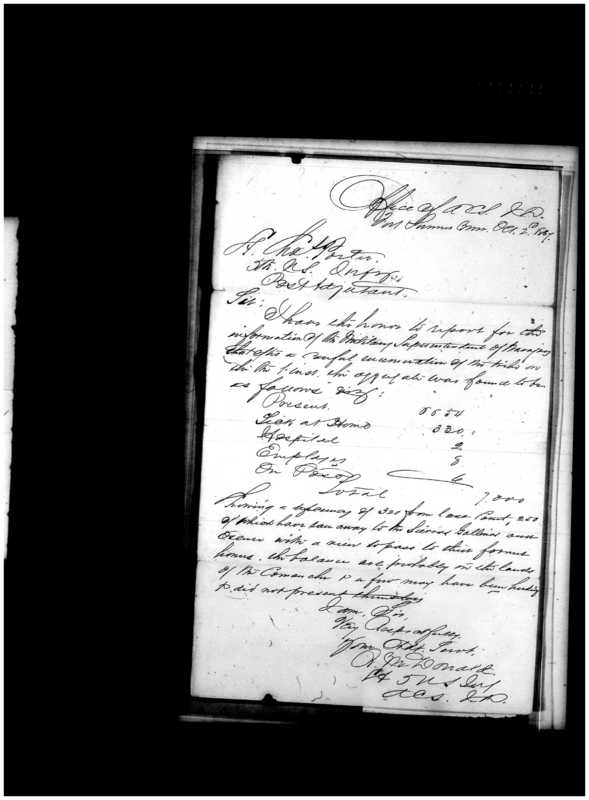 Office of A.C.S. I.D.
Fort Sumner Oct. 2d 1867.
Lt. Chas. Porter.
5th U.S. Infty.
Post Adjutant.
Sir:
I have the honor to report for the
information of the Military Superintendent of Navajoes
that after a careful enumeration of the tribe on
the 1st inst. the aggregate was found to be
as follows viz:
Present.
Sick at Home 320
Hospital 2
Employes 8
In Prison 6
Total
Showing a deficiency of 320 from last Count, 250
of which have ran away to the Sierras and
with a view to pass to their former
homes. the balance are probably on the lands
of the Comanche & a few may have been hiding
& did not present themselves
I am, Sir,
Very Respectfully
Your Obdt. Servt.
McDonald
Lt 5 U S Inf
A.C.S. I.D.